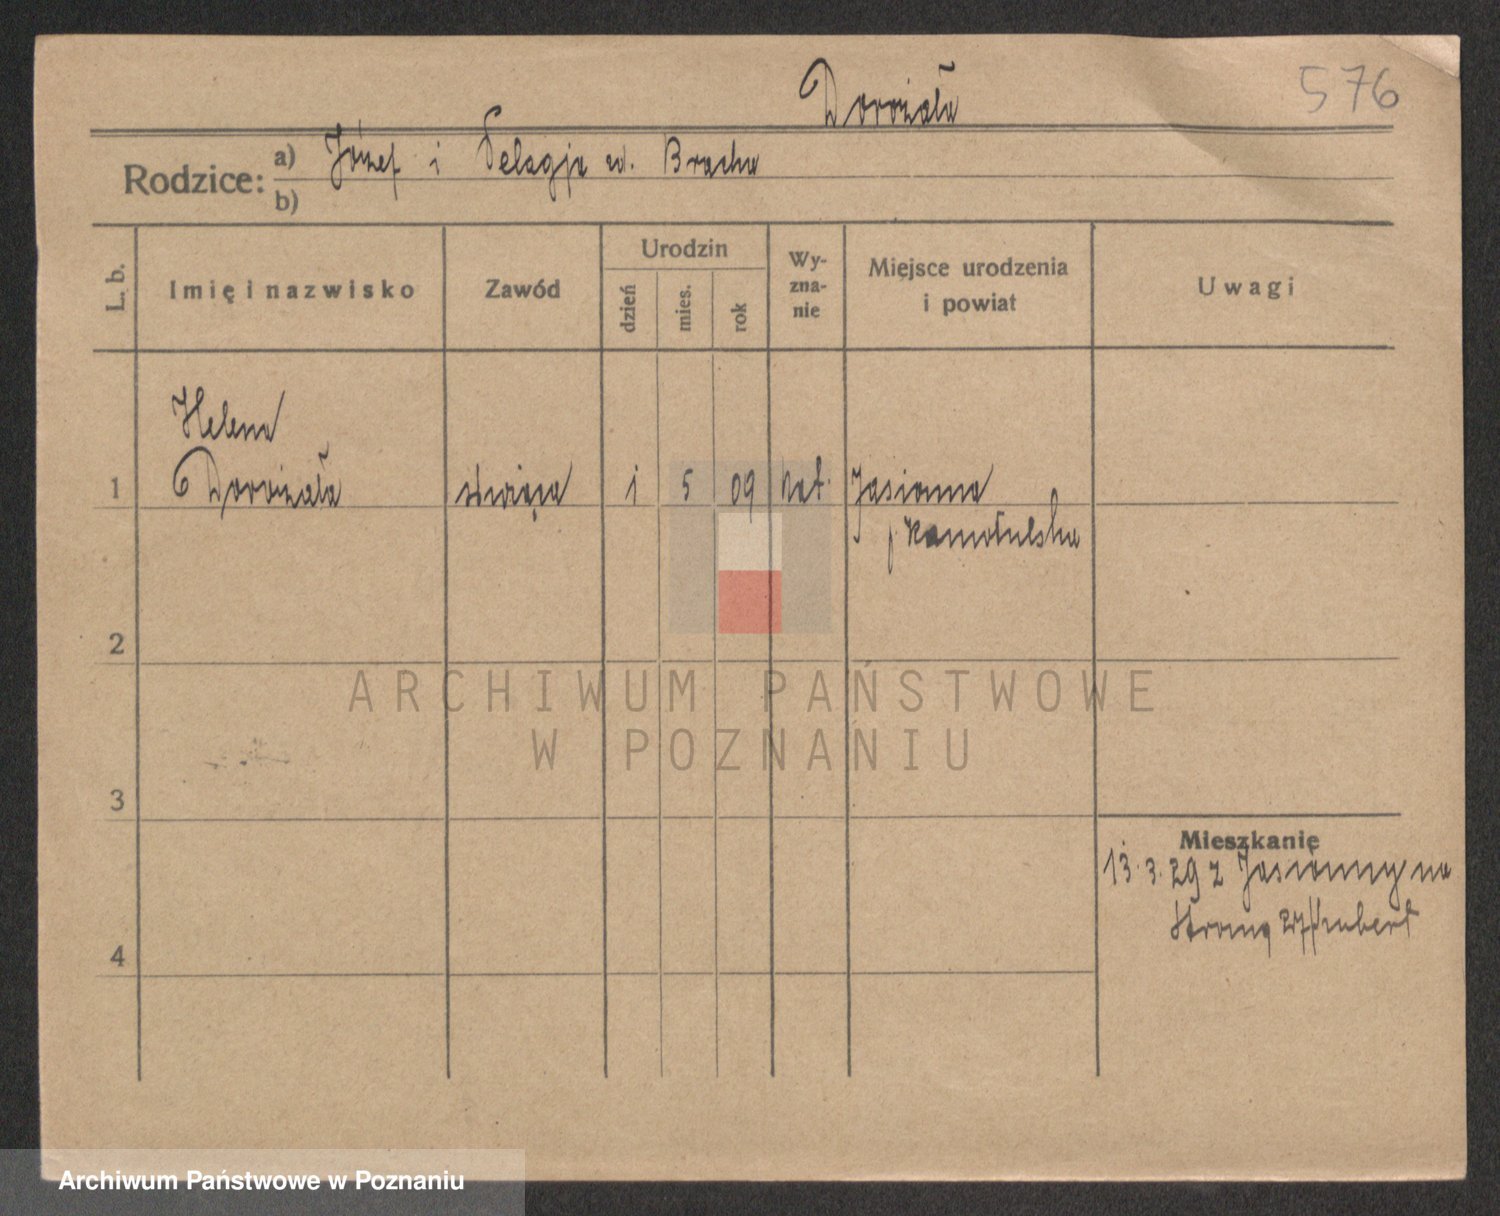 Dorożała
576
Rodzice:
a) Józef i Pelagja ur. Bracka
b)
L. b.
Imię i nazwisko
Zawód
Urodzin
dzień
mies.
rok
Wy-
zna-
nie
Miejsce urodzenia
i powiat
Uwagi
Helena
1 Dorożała służąca 1 5 09 kat. Jasionna
p
2
3
4
Mieszkanie
13. 3. 29 z Jasionny na
27
ARCHIWUM PAŃSTWOWE
W POZNANIU
Archiwum Państwowe w Poznaniu